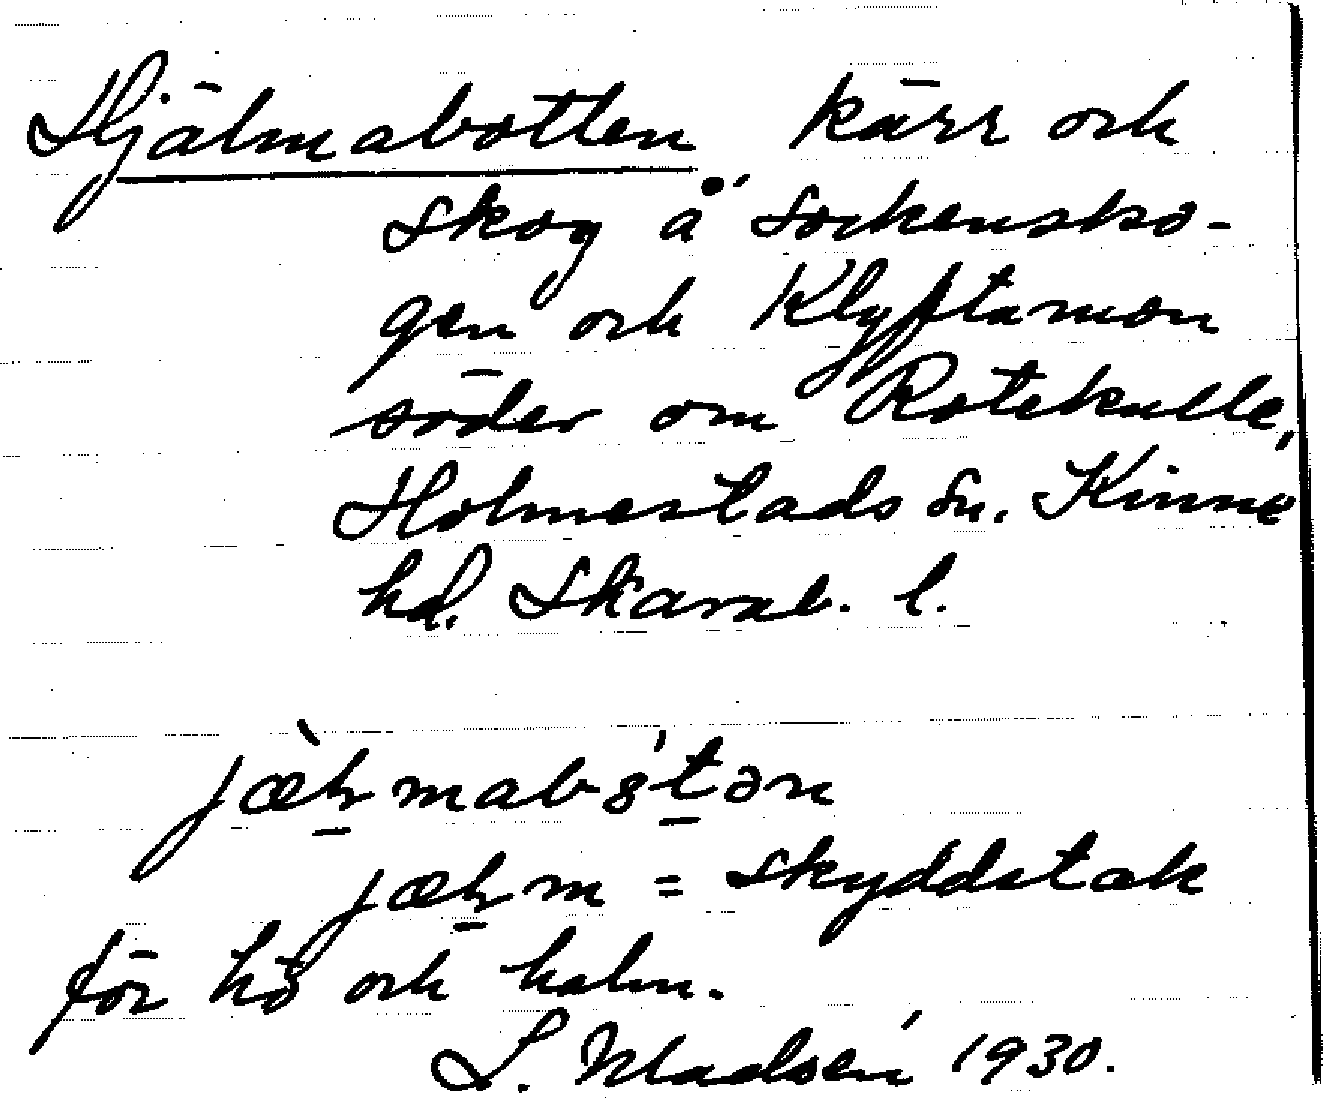 Hjälmabotten kärr och
skog å sockensko-
gen och Klyftamon
söder om Rotekulle,
Holmestads sn. Kinne
hd. Skarab. l.
jæḷmab
jæḷm = skyddstak
för hö och halm.
S. Madsén 1930.